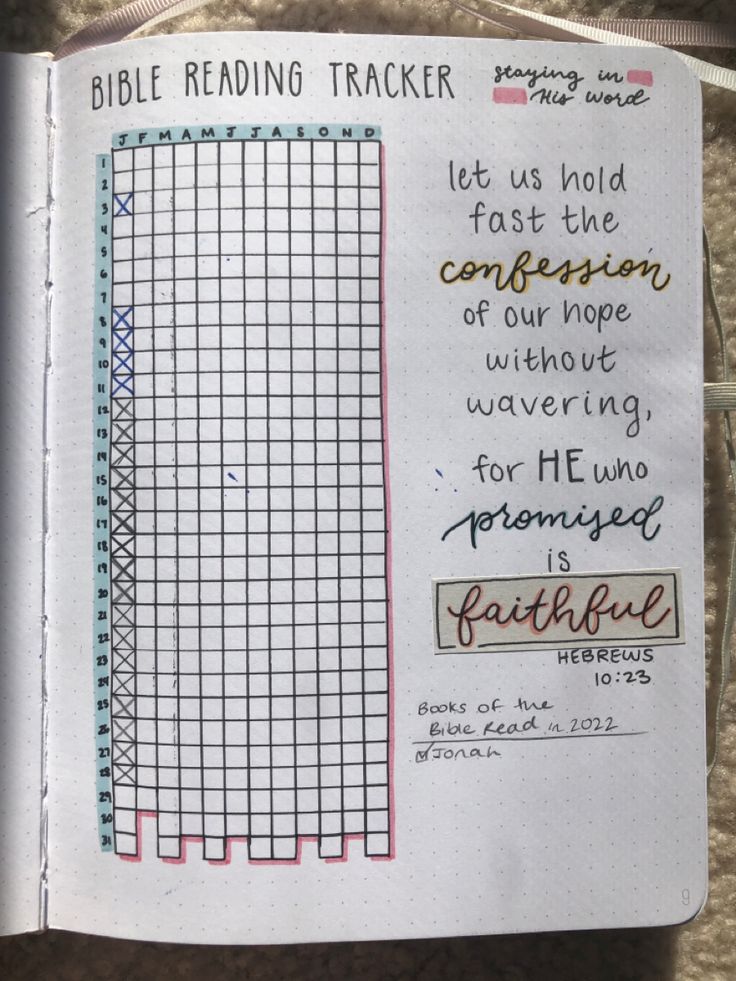 BIBLE READING TRACKER
staying in
His word
J F M A M J J A S O N D
1
2
3
4
5
6
7
8
9
10
11
12
13
14
15
16
17
18
19
20
21
22
23
24
25
26
27
28
29
30
31
let us hold
fast the
confession
of our hope
without
wavering,
for HE who
promised
is
faithful
HEBREWS
10:23
BOOKS OF the
Bible Read in 2022
Jonah
9